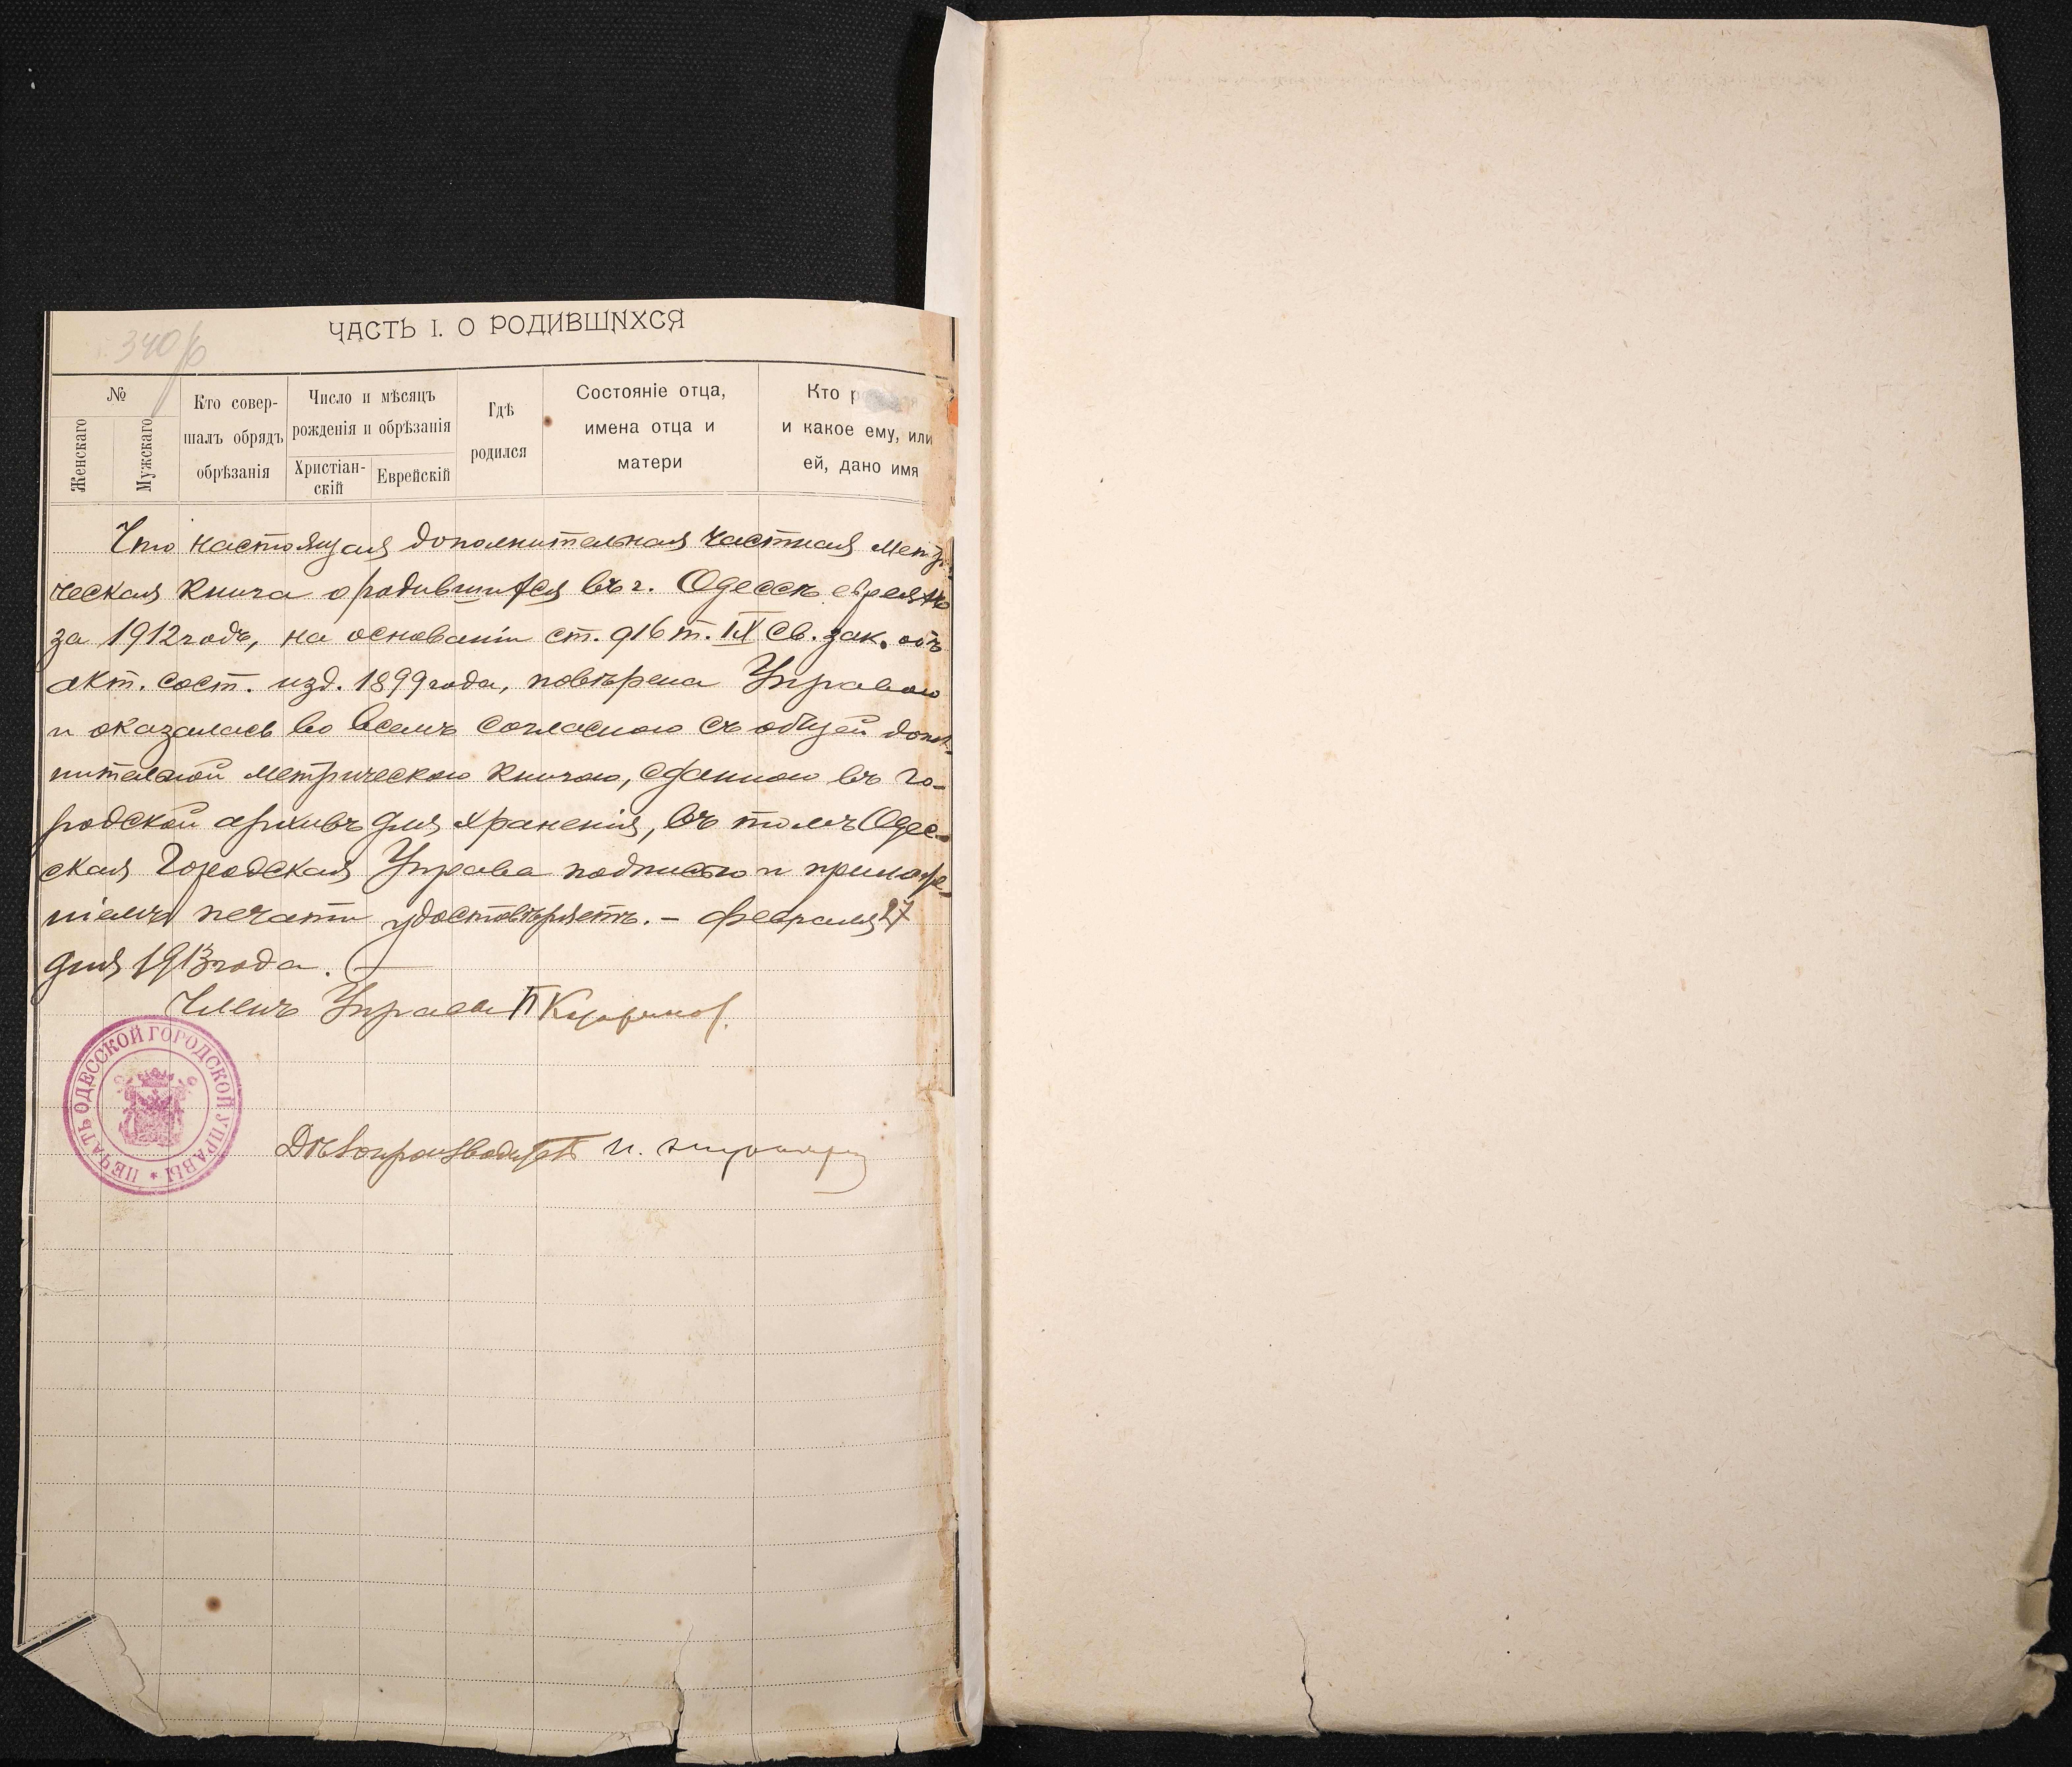 ЧАСТЬ I. О РОДИВШИХСЯ
340/6
№
Женскаго
Мужскаго
Кто совер-
шалъ обрядъ
обрѣзанія
Число и мѣсяцъ
рожденія и обрѣзанія
Христіан-
скій
Еврейскій
Гдѣ
родился
Состояніе отца,
имена отца и
матери
Кто
и какое ему, или
ей, дано имя
Что настоящая дополнительная частная метри-
ческая книга о родившихся въ г. Одессѣ евреяхъ
за 1912 годъ, на основаніи ст. 916 т. IX Св. зак. объ
акт. сост. изд. 1899 года, повѣрена Управою
и оказалась во всемъ согласною съ общей допол-
нительной метрическою книгою, сданною въ го-
родской архивъ для храненія, въ томъ Одес-
ская Городская Управа подписью и приложе-
ніемъ печати удостовѣряетъ. – Февраля 27
дня 1913 года.
Членъ Управы П
ПЕЧАТЬ ОДЕССКОЙ ГОРОДСКОЙ УПРАВЫ *
Дѣлопроизводитель И.